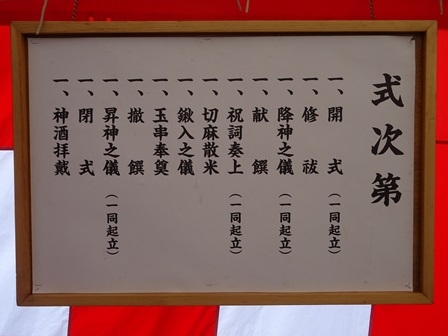 式次第
一、開式（一同起立）
一、修祓
一、降神之儀（一同起立）
一、献饌
一、祝詞奏上（一同起立）
一、切麻散米
一、鍬入之儀
一、玉串奉奠
一、撤饌
一、昇神之儀（一同起立）
一、閉式
一、神酒拝戴